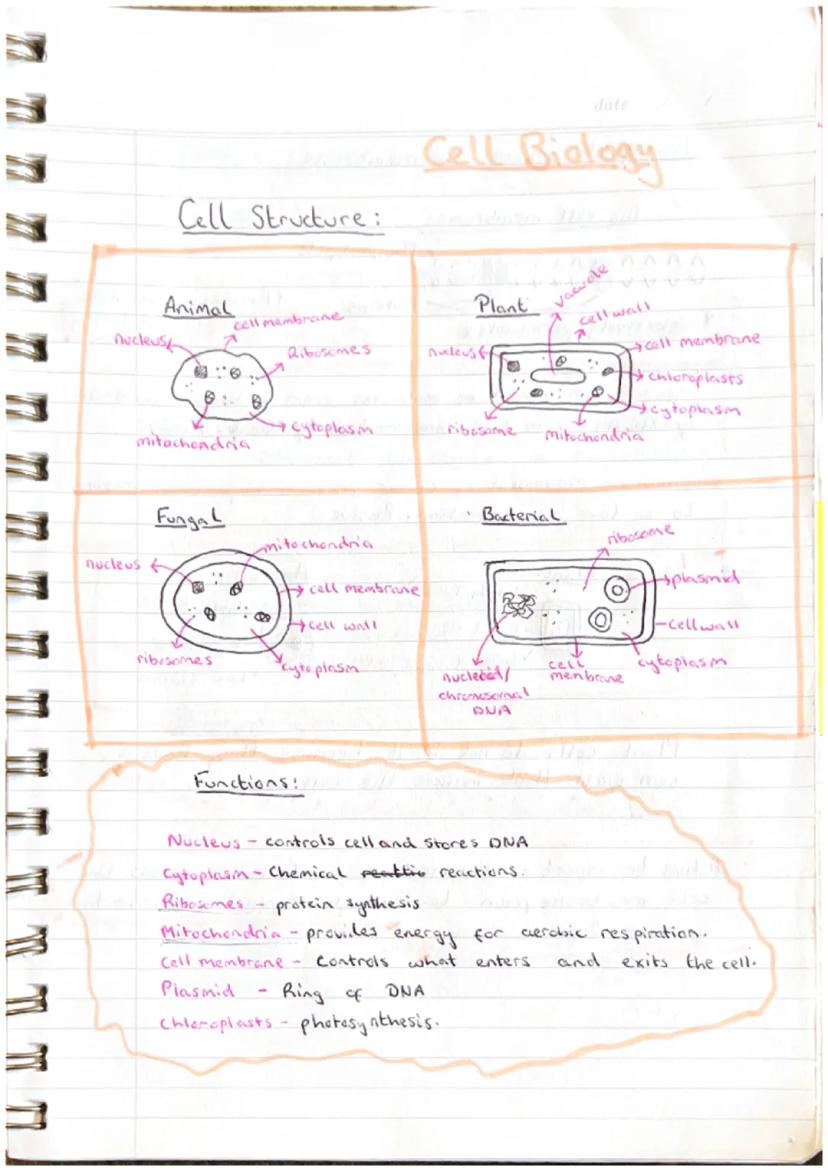 date
Cell Biology
Cell Structure:
Animal
cell membrane
nucleus
Ribosomes
cytoplasm
mitochondria
Plant
vacuole
cell wall
nucleus
cell membrane
chloroplasts
cytoplasm
ribosome
mitochondria
Fungal
mitochondria
nucleus
cell membrane
cell wall
ribosomes
cytoplasm
Bacterial
ribosome
plasmid
cell wall
cytoplasm
cell
membrane
nucleoid/
chromosomal
DNA
Functions:
Nucleus - controls cell and stores DNA
Cytoplasm - Chemical reactions.
Ribosomes - protein synthesis
Mitochondria - provides energy for aerobic respiration.
Cell membrane - Controls what enters and exits the cell.
Plasmid - Ring of DNA
Chloroplasts - photosynthesis.